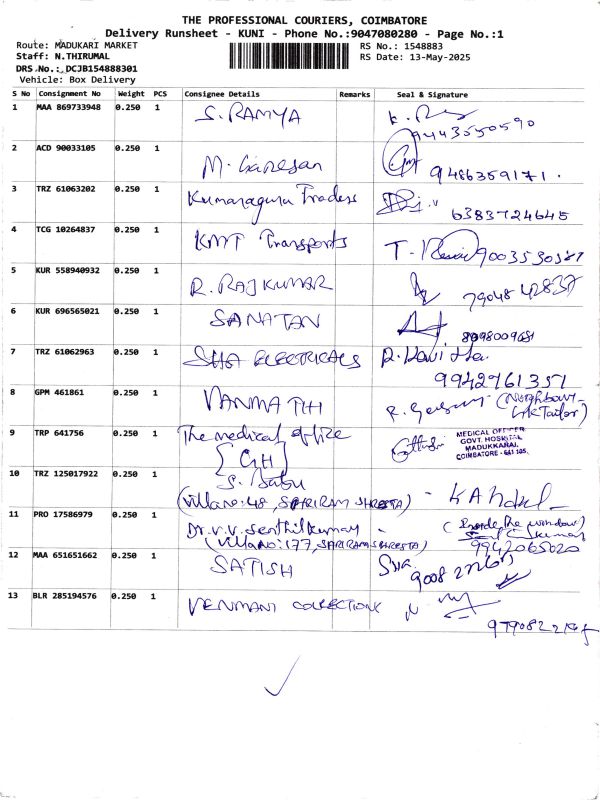 THE PROFESSIONAL COURIERS, COIMBATORE
Delivery Runsheet - KUNI - Phone No.:9047080280 - Page No.:1
Route: MADUKARI MARKET RS No.: 1548883
Staff: N.THIRUMAL RS Date: 13-May-2025
DRS No.: DCJB154888301
Vehicle: Box Delivery
S No Consignment No Weight PCS Consignee Details Remarks Seal & Signature
1 MAA 869733948 0.250 1 S. RAMYA
9443550590
2 ACD 90033105 0.250 1 M. Ganesan 9486359171.
3 TRZ 61063202 0.250 1 Kumaraguru Traders
6383724645
4 TCG 10264837 0.250 1 KMT Transports
5 KUR 558940932 0.250 1 R. RAJKUMAR 79048 42837
6 KUR 696565021 0.250 1 SANATAN
7 TRZ 61062963 0.250 1 SHA ELECTRICALS
9942961351
8 GPM 461861 0.250 1 VANMATHI
9 TRP 641756 0.250 1 The medical office
[GH]
MEDICAL OFFICER
GOVT. HOSPITAL
MADUKKARAI,
COIMBATORE - 641 105.
10 TRZ 125017922 0.250 1 S. Babu
(Villa no: 48, SRRIRAM SHRESTA)
11 PRO 17586979 0.250 1 Dr. V.V. Senthilkumar - (Inside the window)
(Villa no: 177, SRRIRAM SHRESTA) 9942065020
12 MAA 651651662 0.250 1 SATISH
13 BLR 285194576 0.250 1 VENMANI COLLECTIONS